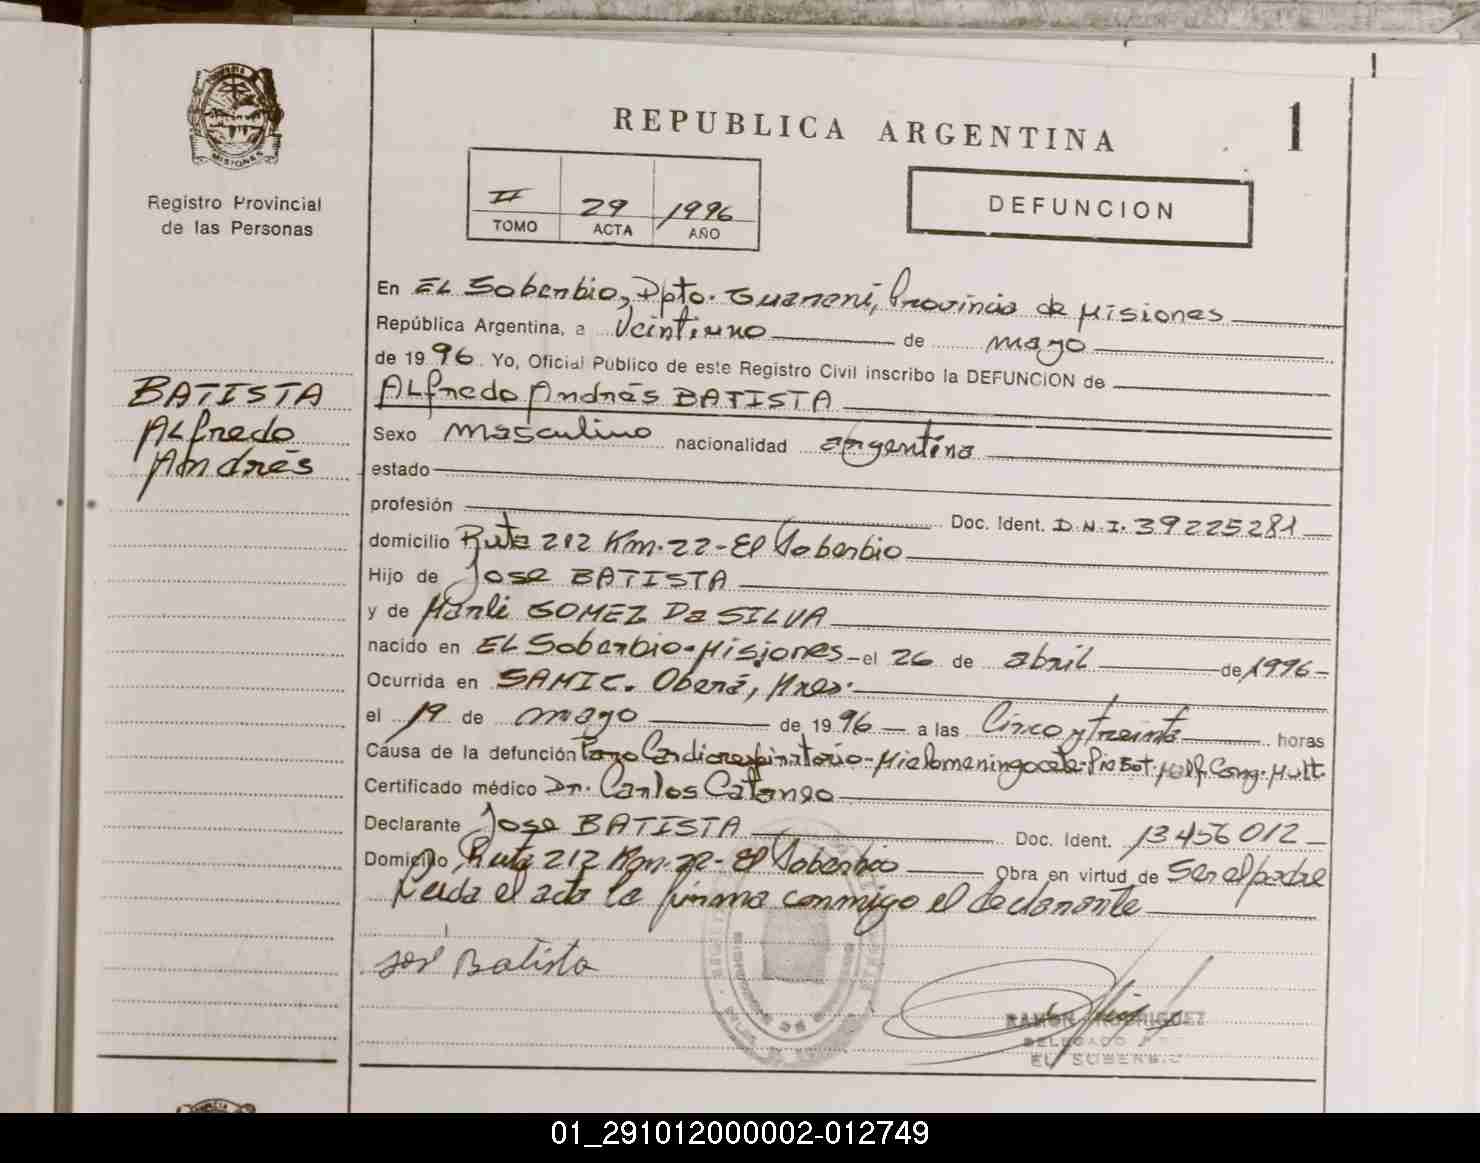 PROVINCIA DE
MISIONES
Registro Provincial
de las Personas
BATISTA
Alfredo
Andrés
REPUBLICA ARGENTINA
1
II 29 1996
TOMO ACTA AÑO
DEFUNCION
En EL Soberbio, Dpto. Guaraní, Provincia de Misiones
República Argentina, a Veintiuno de mayo
de 1996. Yo, Oficial Público de este Registro Civil inscribo la DEFUNCION de
ALfredo Andrés BATISTA
Sexo masculino nacionalidad argentina
estado
profesión Doc. Ident. D.N.I. 39225281
domicilio Ruta 212 Km. 22-El Soberbio
Hijo de Jose BATISTA
y de Marli GOMEZ Da SILVA
nacido en EL Soberbio-Misiones-el 26 de abril de 1996-
Ocurrida en SAMIC. Oberá, Mnes.
el 19 de mayo de 1996 a las Cinco y treinta horas
Causa de la defunción Paro Cardiorespiratorio-Mielomeningocele-Pie Bot. Malf. Cong. Mult.
Certificado médico Dr. Carlos
Declarante Jose BATISTA Doc. Ident. 13456012
Domicilio Ruta 212 Km. 22-El Soberbio Obra en virtud de Ser el padre
Leida el acta la firma conmigo el declarante
José Batista
RAMON RODRIGUEZ
DELEGADO
EL SOBERBIO
01_291012000002-012749